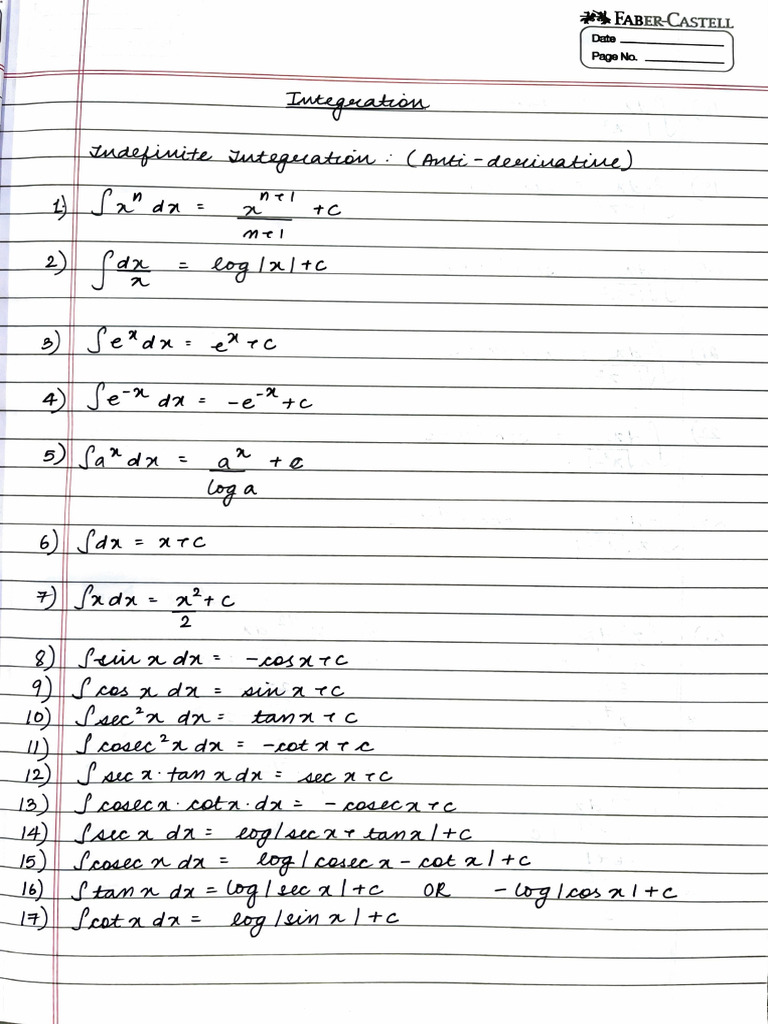 FABER-CASTELL
Date
Page No.
Integration
Indefinite Integration : (Anti-derivative)
1) ∫xⁿ dx = xⁿ⁺¹/n+1 +c
2) ∫dx/x = log|x|+c
3) ∫eˣdx = eˣ+c
4) ∫e⁻ˣ dx = -e⁻ˣ+c
5) ∫aˣdx = aˣ/log a +c
6) ∫dx = x+c
7) ∫xdx = x²/2 +c
8) ∫sin x dx = -cos x+c
9) ∫cos x dx = sin x+c
10) ∫sec²x dx = tan x+c
11) ∫cosec²x dx = -cot x+c
12) ∫sec x·tan x dx = sec x+c
13) ∫cosec x·cot x·dx = -cosec x+c
14) ∫sec x dx = log|sec x+tan x|+c
15) ∫cosec x dx = log|cosec x-cot x|+c
16) ∫tan x dx = log|sec x|+c OR -log|cos x|+c
17) ∫cot x dx = log|sin x|+c